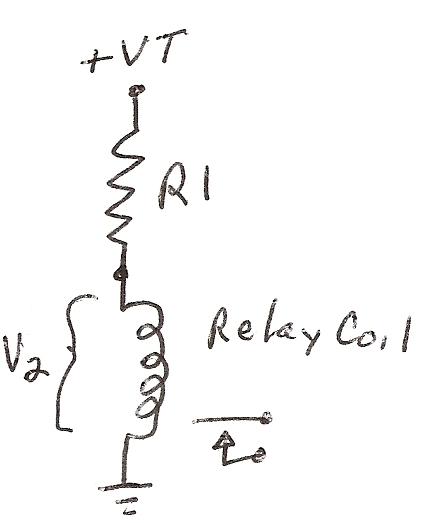 +VT
R1
V2
Relay Coil